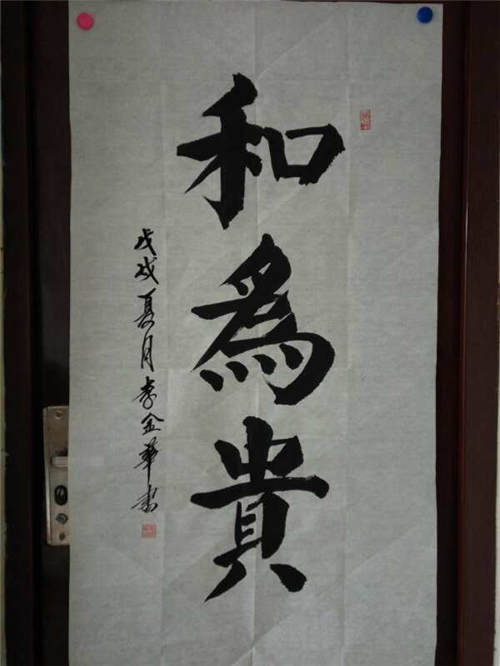 和為貴
戊戌夏月李金華書